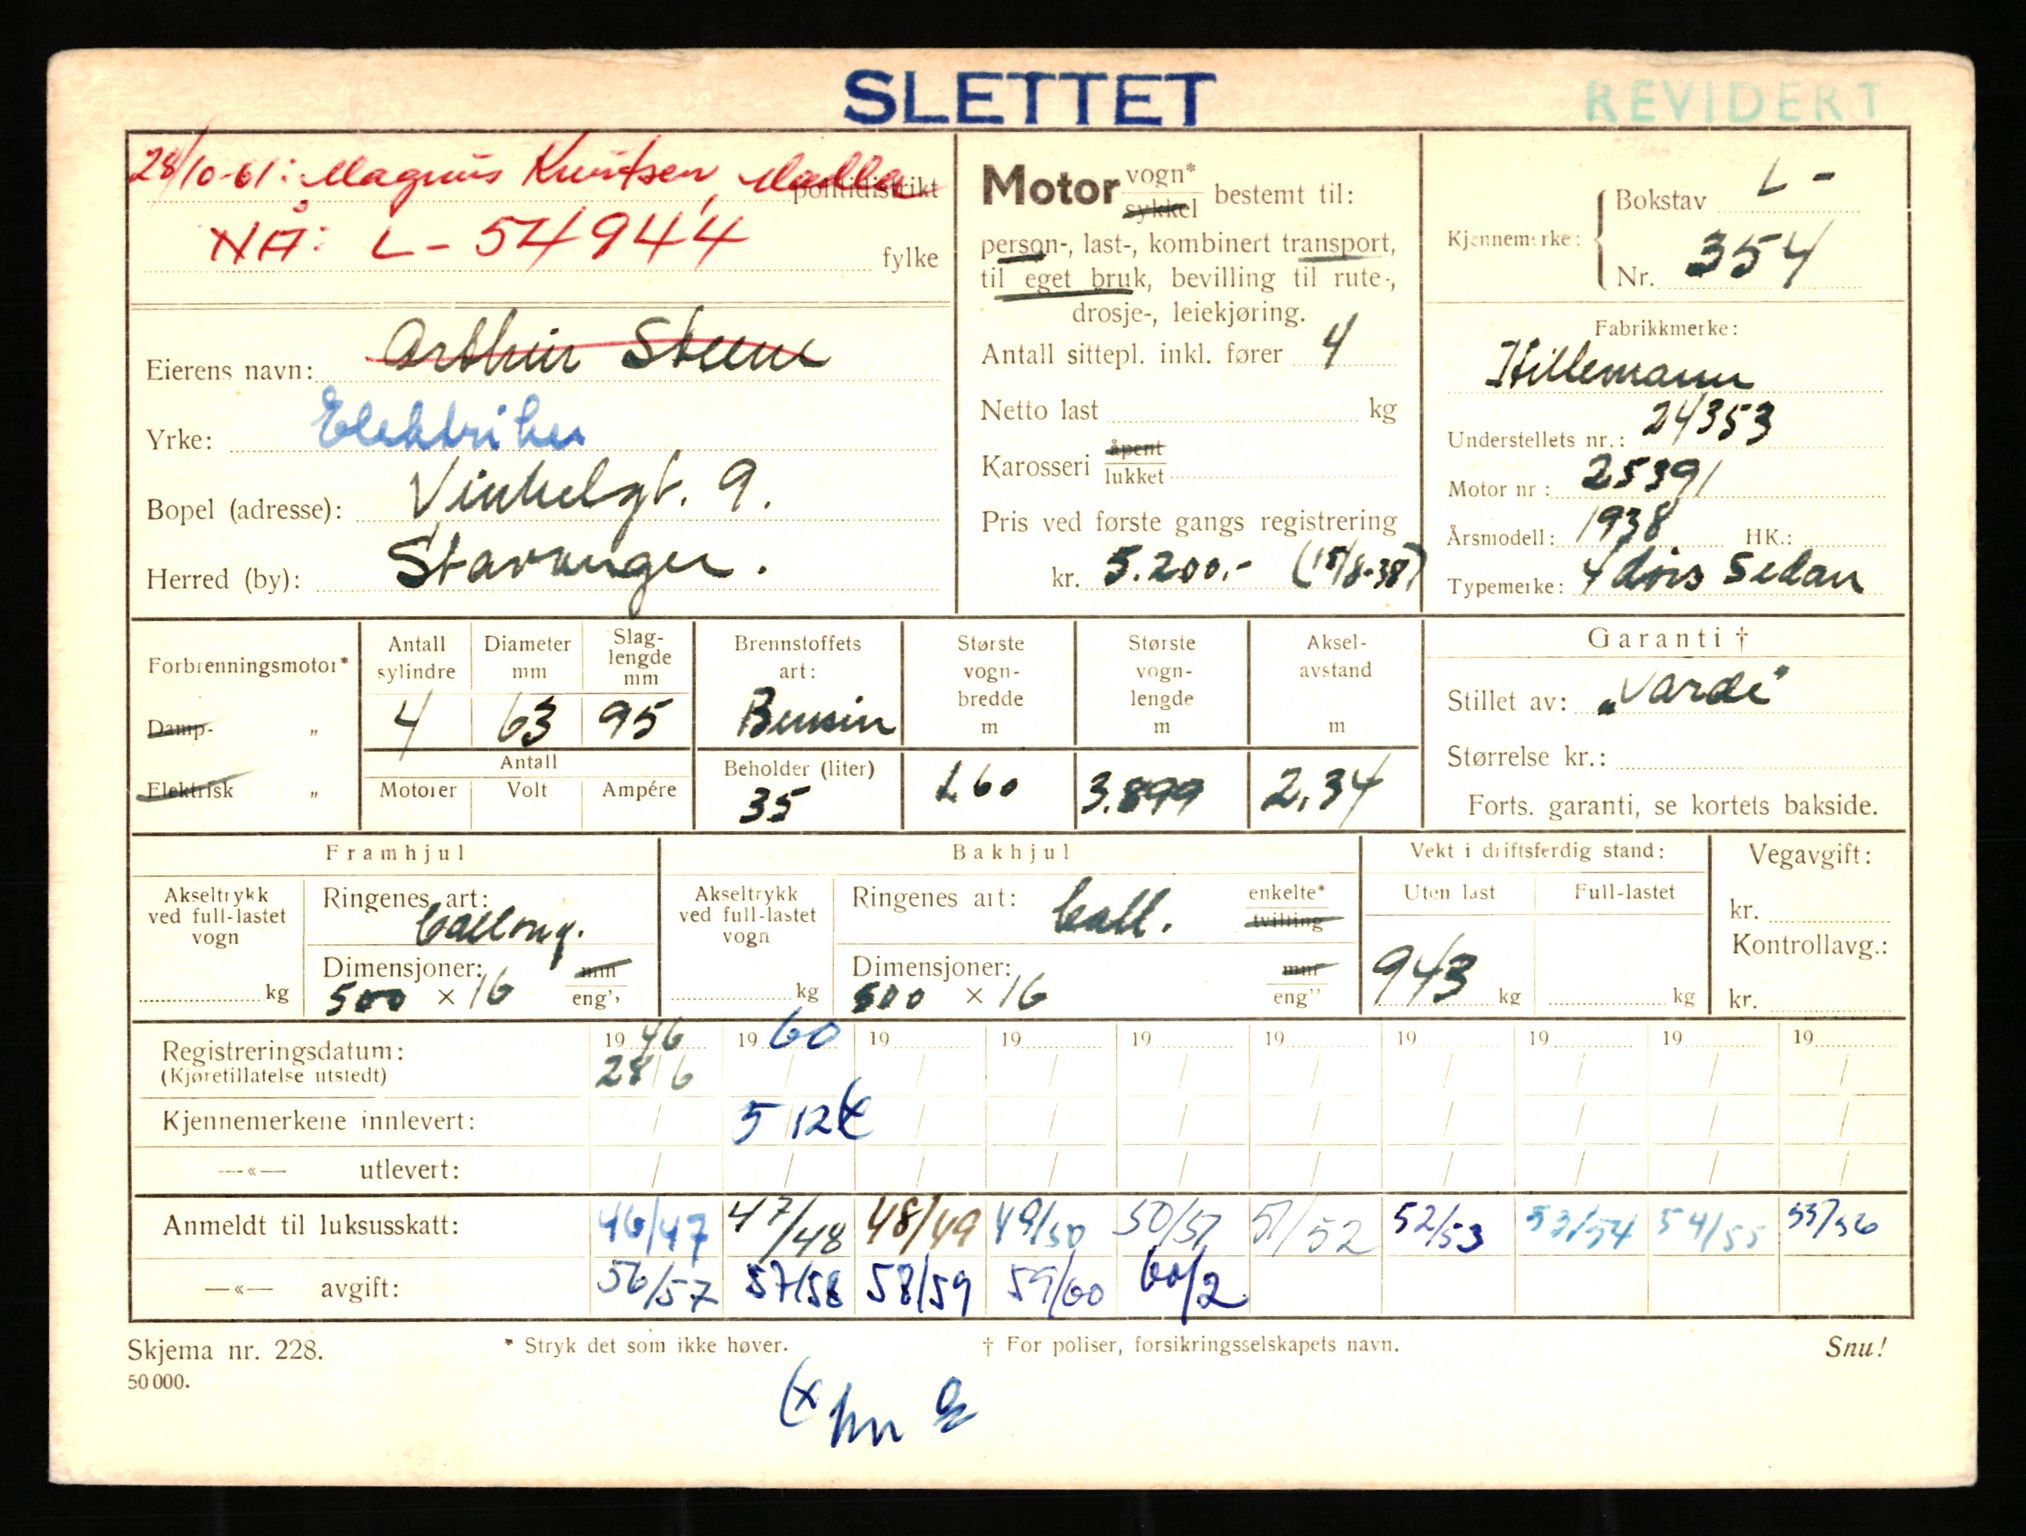 SLETTET
REVIDERT
28/10-61: Magnus Knutsen, Madla
politidistrikt
NÅ: L - 54944
fylke
Eierens navn: Arthur Steene
Yrke: Elektriker
Bopel (adresse): Vinkelgt. 9.
Herred (by): Stavanger.
Motor vogn* sykkel bestemt til:
person-, last-, kombinert transport,
til eget bruk, bevilling til rute-,
drosje-, leiekjøring.
Antall sittepl. inkl. fører 4
Netto last kg
Karosseri åpent lukket
Pris ved første gangs registrering
kr. 5.200.- (15/8-38)
Kjennemerke: Bokstav L -
Nr. 354
Fabrikkmerke:
Hillemann
Understellets nr.: 24353
Motor nr: 25391
Årsmodell: 1938 HK.:
Typemerke: 4 dørs Sedan
Forbrenningsmotor*
Damp- „
Elektrisk „
Antall sylindre 4
Diameter mm 63
Slag-lengde mm 95
Antall
Motorer Volt Ampére
Brennstoffets art: Bensin
Beholder (liter) 35
Største vogn-bredde m 1.60
Største vogn-lengde m 3.899
Aksel-avstand m 2,34
Garanti †
Stillet av: „Varde"
Størrelse kr.:
Forts. garanti, se kortets bakside.
Framhjul
Akseltrykk ved full-lastet vogn kg
Ringenes art: Ballong.
Dimensjoner: 500 × 16 mm eng''
Bakhjul
Akseltrykk ved full-lastet vogn kg
Ringenes art: Ball. enkelte* tvilling
Dimensjoner: 500 × 16 mm eng''
Vekt i driftsferdig stand:
Uten last 943 kg
Full-lastet kg
Vegavgift:
kr.
Kontrollavg.:
kr.
Registreringsdatum: 19 46 19 60 19 19 19 19 19 19 19 19
(Kjøretillatelse utstedt) 28/6
Kjennemerkene innlevert: 5/12 (x
—«— utlevert:
Anmeldt til luksusskatt: 46/47 47/48 48/49 49/50 50/51 51/52 52/53 53/54 54/55 55/56
—«— avgift: 56/57 57/58 58/59 59/60 60/2
Skjema nr. 228.
* Stryk det som ikke høver.
† For poliser, forsikringsselskapets navn.
Snu!
50 000.
(x